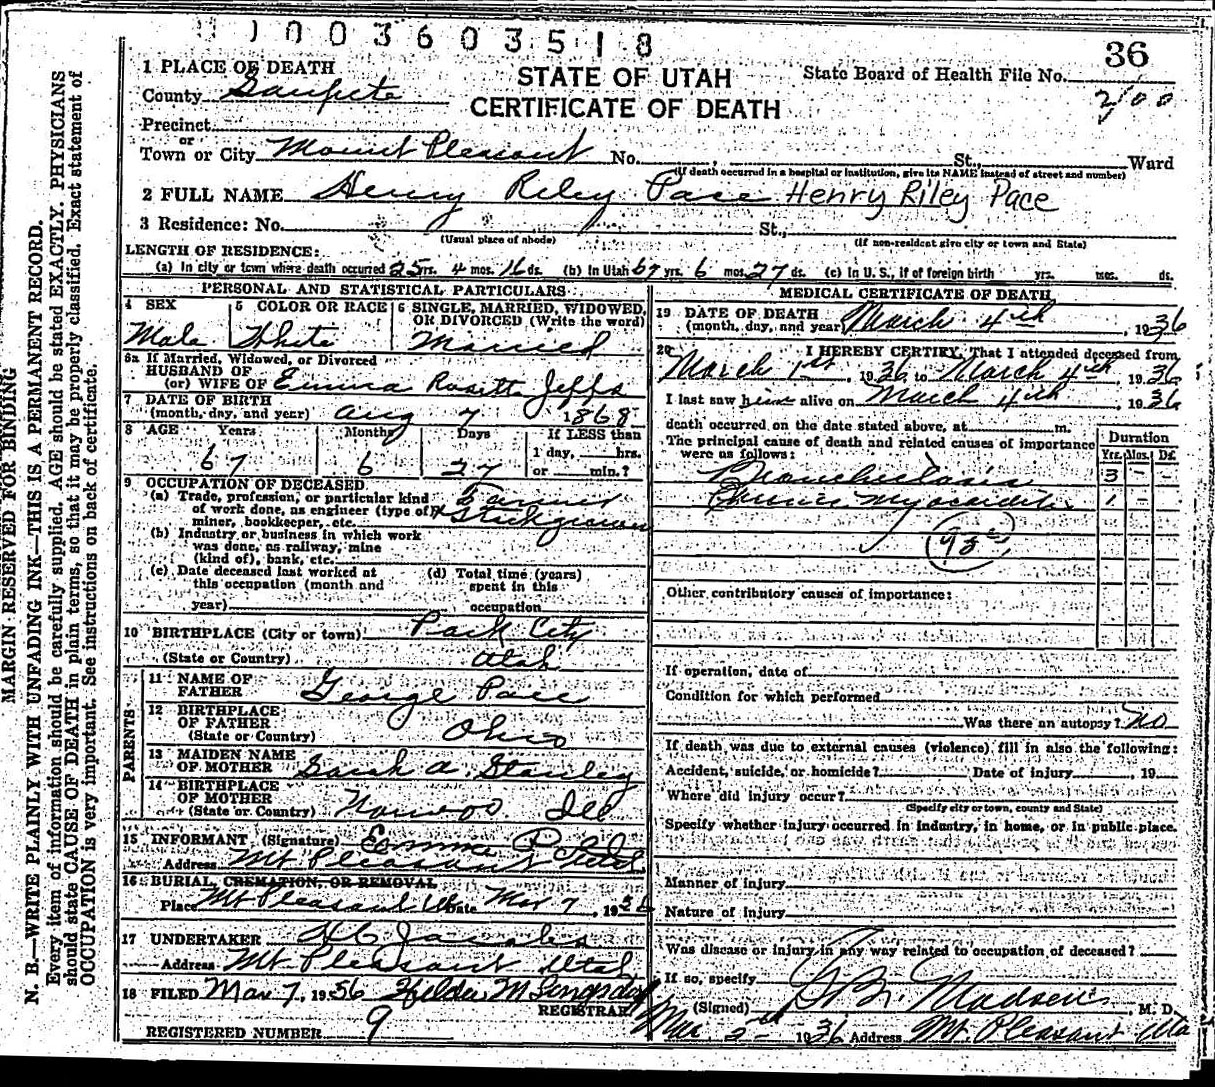 1003603518
36
1 PLACE OF DEATH
STATE OF UTAH
State Board of Health File No.
County Sanpete
CERTIFICATE OF DEATH
Precinct
or
Town or City Mount Pleasant No. , St., Ward
(If death occurred in a hospital or institution, give its NAME instead of street and number)
2 FULL NAME Henry Riley Pace Henry Riley Pace
3 Residence: No. St.,
(Usual place of abode) (If non-resident give city or town and State)
LENGTH OF RESIDENCE:
(a) In city or town where death occurred 25 yrs. 4 mos. 16 ds. (b) In Utah 67 yrs. 6 mos. 27 ds. (c) In U.S., if of foreign birth yrs. mos. ds.
PERSONAL AND STATISTICAL PARTICULARS
4 SEX
Male
5 COLOR OR RACE
White
6 SINGLE, MARRIED, WIDOWED, OR DIVORCED (Write the word)
Married
6a If Married, Widowed, or Divorced
HUSBAND OF
(or) WIFE OF Emma Rosetta Jeffs
7 DATE OF BIRTH
(month, day, and year) Aug 7 1868
8 AGE Years Months Days If LESS than
1 day, hrs.
67 6 27 or min.?
9 OCCUPATION OF DECEASED
(a) Trade, profession, or particular kind Farmer
of work done, as engineer (type of) &
miner, bookkeeper, etc. Stockgrower
(b) Industry or business in which work
was done, as railway, mine
(kind of), bank, etc.
(c) Date deceased last worked at
this occupation (month and
year)
(d) Total time (years)
spent in this
occupation
10 BIRTHPLACE (City or town) Park City
(State or Country) Utah
PARENTS
11 NAME OF
FATHER George Pace
12 BIRTHPLACE
OF FATHER
(State or Country) Ohio
13 MAIDEN NAME
OF MOTHER Sarah A. Stanley
14 BIRTHPLACE
OF MOTHER
(State or Country) Nauvoo Ill
15 INFORMANT (Signature) Emma P
Address Mt Pleasant Utah
16 BURIAL, CREMATION, OR REMOVAL
Place Mt Pleasant Ut Date Mar 7, 1936
17 UNDERTAKER
Address Mt. Pleasant Utah
18 FILED Mar 7, 1936 Hilda M
REGISTRAR
REGISTERED NUMBER 9
MEDICAL CERTIFICATE OF DEATH
19 DATE OF DEATH
(month, day, and year) March 4th, 1936
20 I HEREBY CERTIFY, That I attended deceased from
March 1st, 1936, to March 4th, 1936
I last saw him alive on March 4th, 1936
death occurred on the date stated above, at m.
The principal cause of death and related causes of importance
were as follows:
Duration
Yrs. Mos. Ds.
Bronchiectasis 3 - -
Chronic Myocarditis 1 - -
Other contributory causes of importance:
If operation, date of
Condition for which performed
Was there an autopsy? No
If death was due to external causes (violence) fill in also the following:
Accident, suicide, or homicide? Date of injury , 19
Where did injury occur?
(Specify city or town, county and State)
Specify whether injury occurred in industry, in home, or in public place.
Manner of injury
Nature of injury
Was disease or injury in any way related to occupation of deceased?
If so, specify
(Signed) Madsen, M. D.
Mar. 5th 1936 Address Mt. Pleasant Uta
MARGIN RESERVED FOR BINDING
N. B.—WRITE PLAINLY WITH UNFADING INK—THIS IS A PERMANENT RECORD.
Every item of information should be carefully supplied. AGE should be stated EXACTLY. PHYSICIANS
should state CAUSE OF DEATH in plain terms, so that it may be properly classified. Exact statement of
OCCUPATION is very important. See instructions on back of certificate.